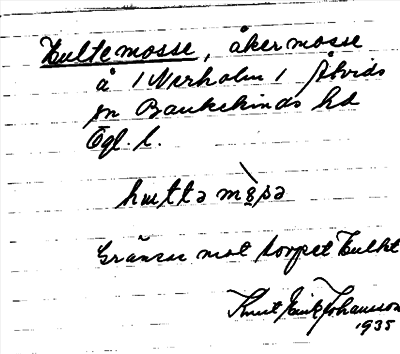 Hultemosse, åkermosse
å /Nerholm/ Åtvids
sn Bankekinds hd
Ögl. l.
hɯttə
Gränsar mot torpet Hultet
Knut Erik Johansson
1935